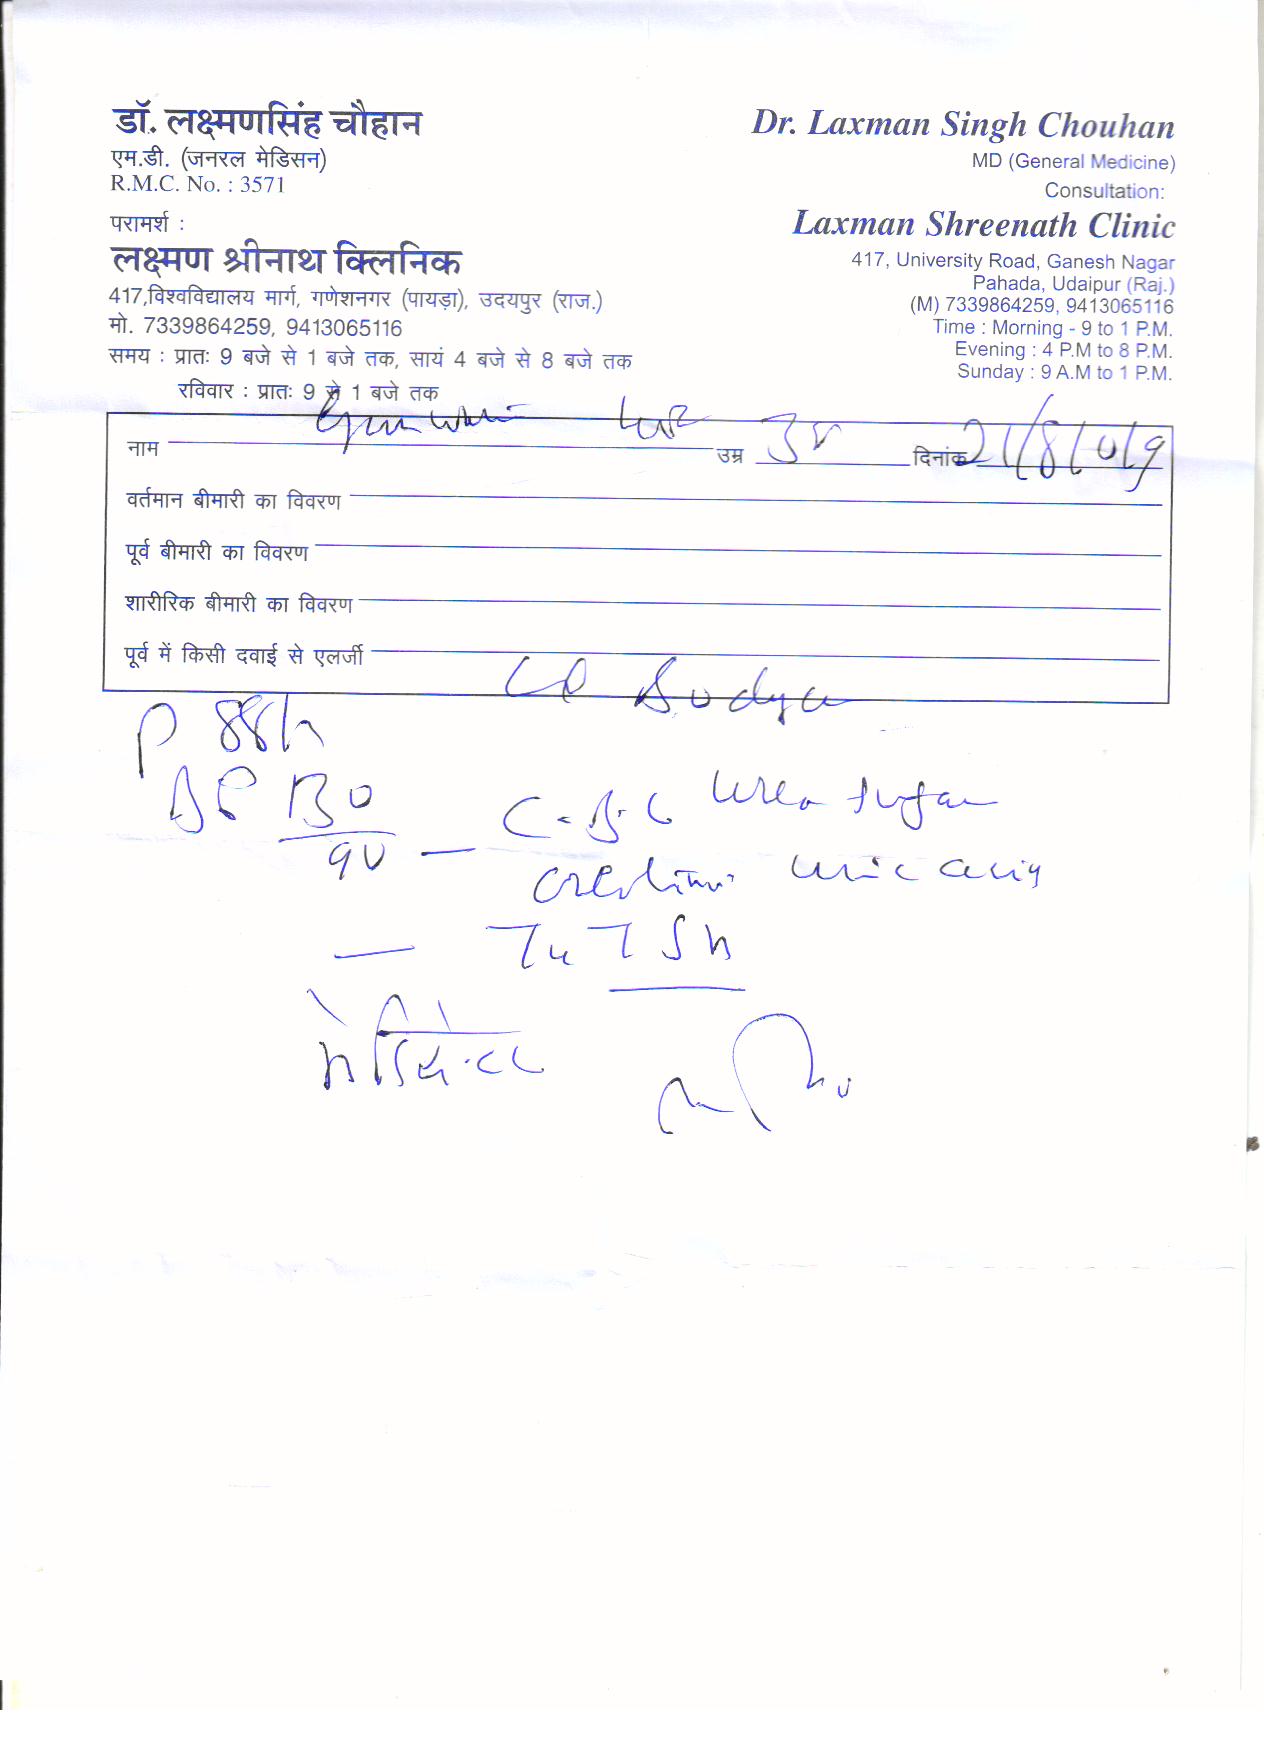 डॉ. लक्ष्मणसिंह चौहान
एम.डी. (जनरल मेडिसन)
R.M.C. No. : 3571
परामर्श :
लक्ष्मण श्रीनाथ क्लिनिक
417,विश्वविद्यालय मार्ग, गणेशनगर (पायड़ा), उदयपुर (राज.)
मो. 7339864259, 9413065116
समय : प्रातः 9 बजे से 1 बजे तक, सायं 4 बजे से 8 बजे तक
रविवार : प्रातः 9 से 1 बजे तक
Dr. Laxman Singh Chouhan
MD (General Medicine)
Consultation:
Laxman Shreenath Clinic
417, University Road, Ganesh Nagar
Pahada, Udaipur (Raj.)
(M) 7339864259, 9413065116
Time : Morning - 9 to 1 P.M.
Evening : 4 P.M to 8 P.M.
Sunday : 9 A.M to 1 P.M.
नाम उम्र दिनांक
वर्तमान बीमारी का विवरण
पूर्व बीमारी का विवरण
शारीरिक बीमारी का विवरण
पूर्व में किसी दवाई से एलर्जी
P 88/
BP 130
90 — C-B-C Urea Sugar
Uric acid
— T4 TSH